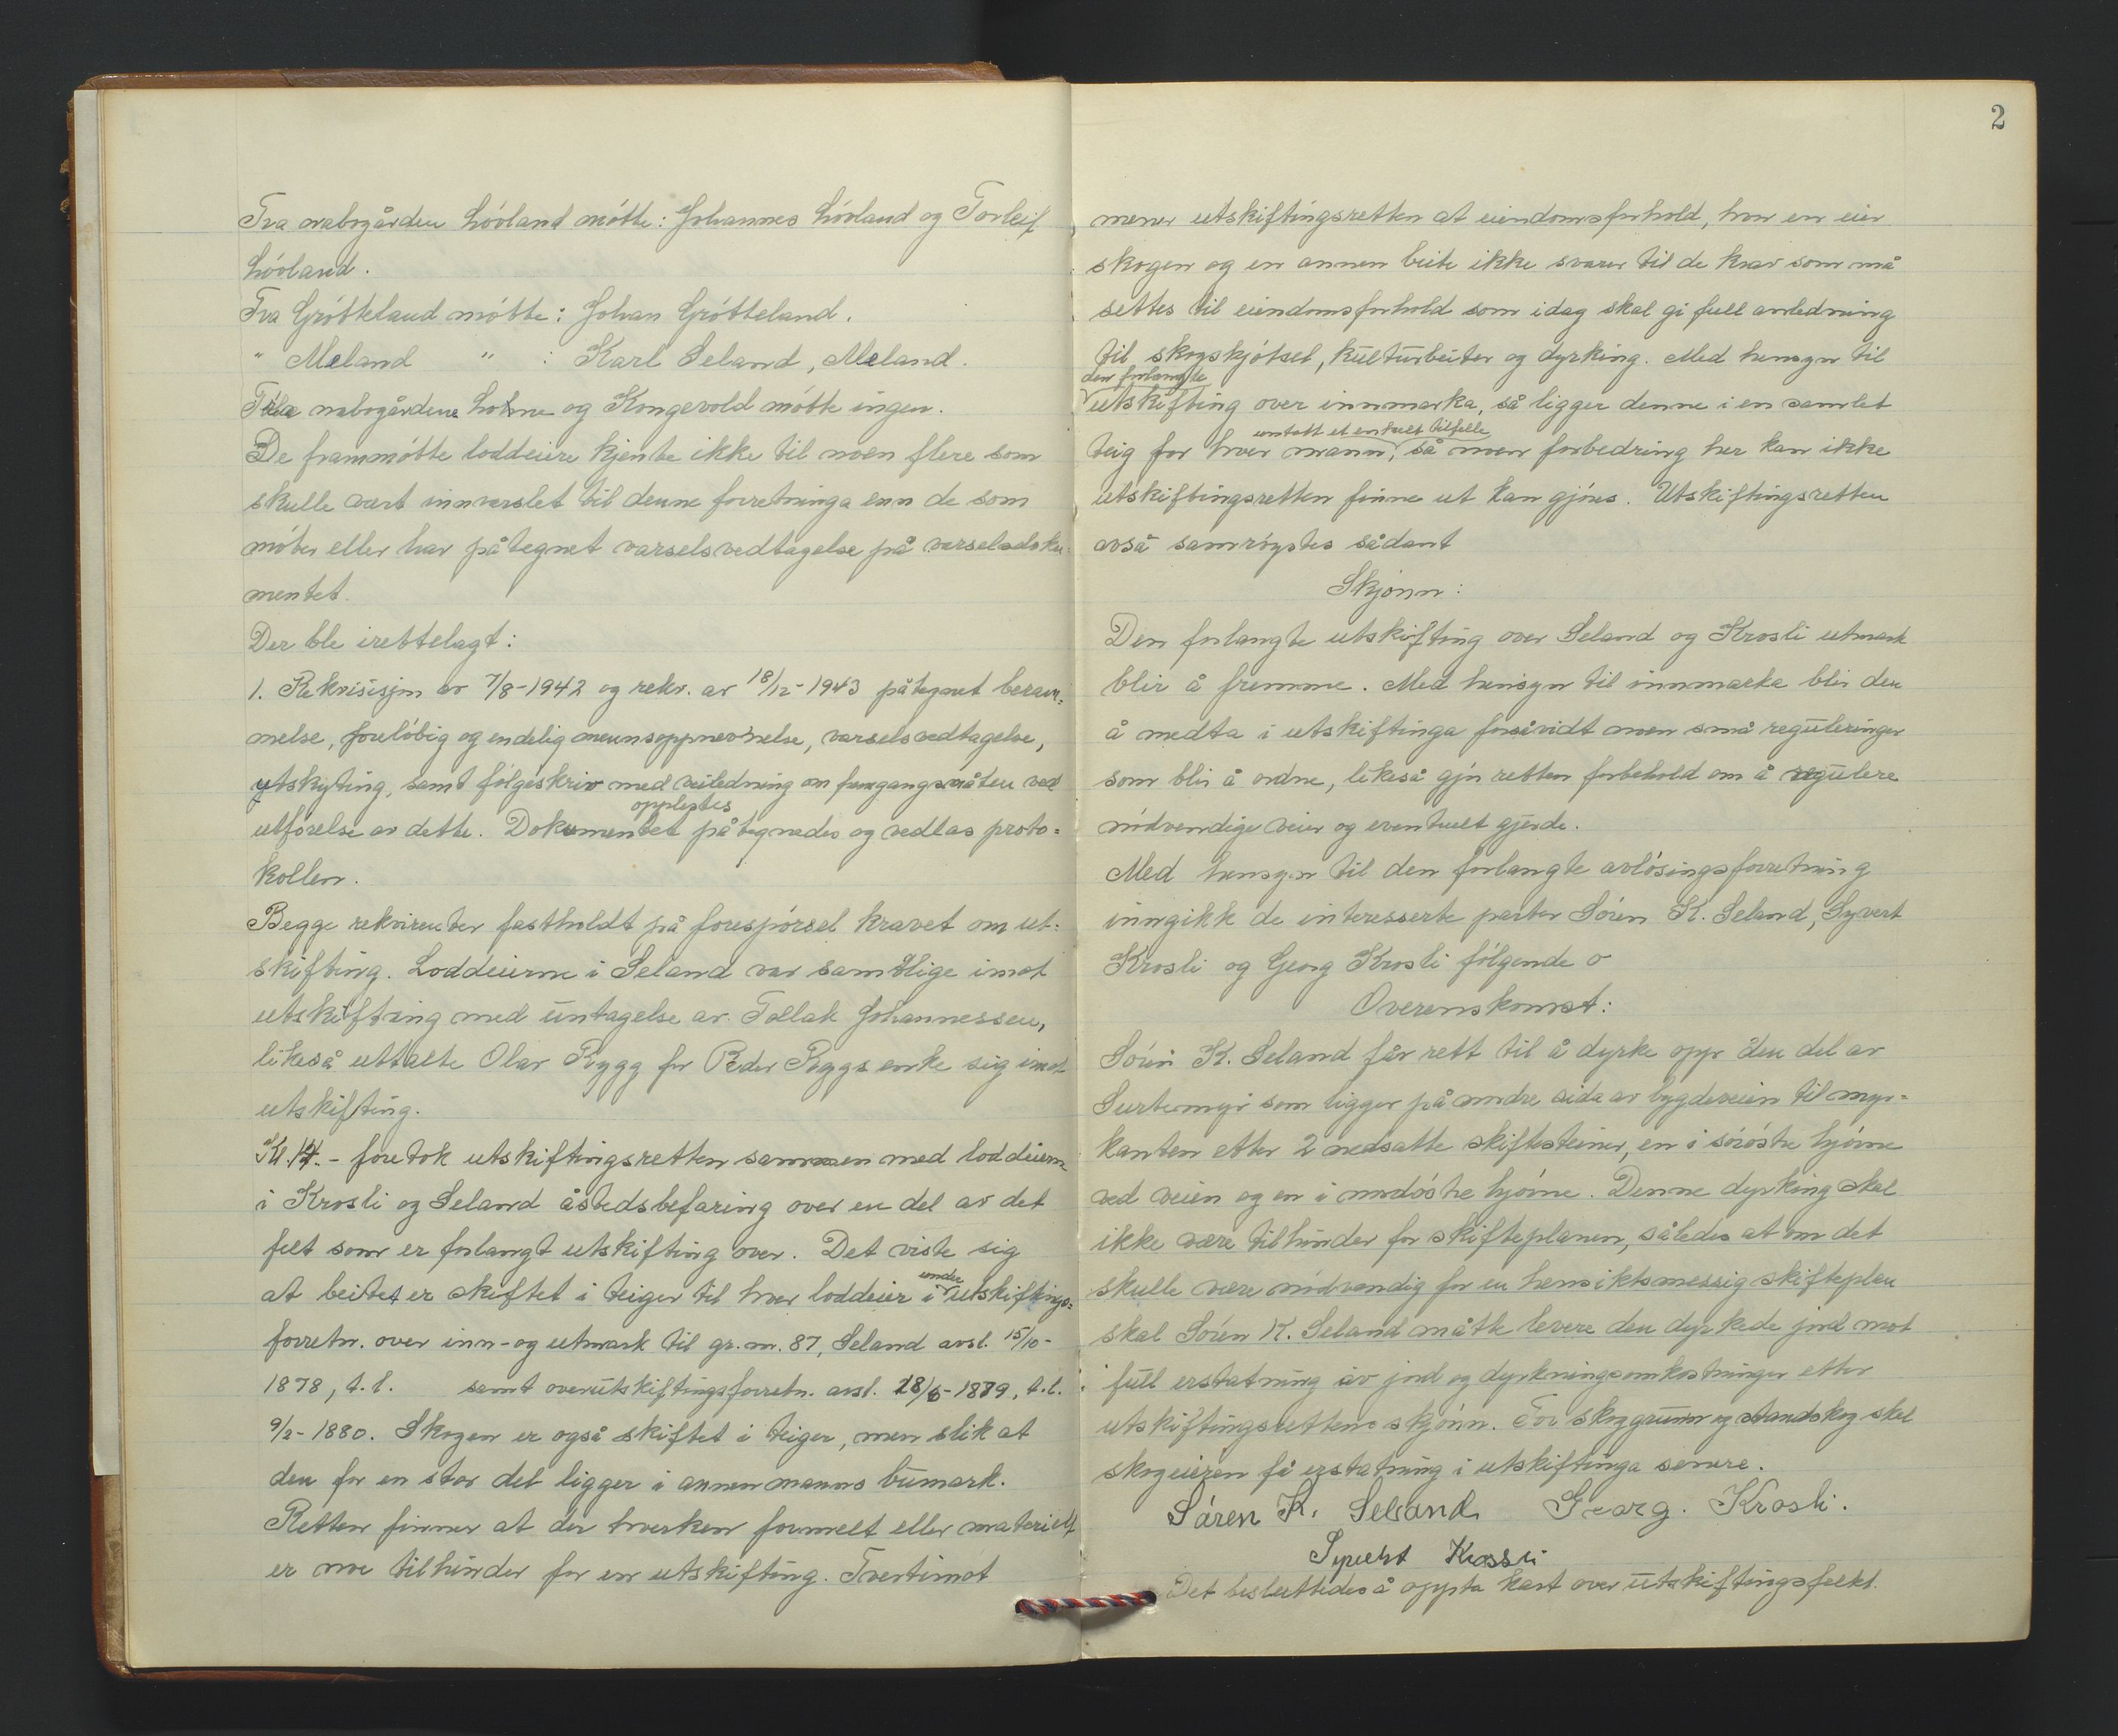 Fra nabogården Lóvland mótte: Johannes Lóvland og Torleif
Lóvland.
Fra Gróttelaud mótte: Johan Grótteland.
" Meland " : Karl Seland, Meland.
Fra nabogårdene Lohne og Kongevold mótte ingen.
De frammótte loddeiere kjente ikke til noen flere som
skulle vært innvarslet til denne forretninga enn de som
móter eller har påtegnet varselsvedtagelse på varselsdoku-
mentet.
Der ble irettelagt:
1. Rekvisisjon av 7/8-1942 og rekv. av 18/12-1943 påtegnet beram-
melse, forelóbig og endelig mennsoppnevnelse, varselsvedtagelse,
utskyting, samt fólgeskriv med veiledning om framgangsmåten ved
opplestes
utfórelse av dette. Dokumentet påtegnedes og vedlas proto-
kollen.
Begge rekvirenter fastholdt på forespórsel kravet om ut-
skifting. Loddeierne i Seland var samtlige imot
utskifting med untagelse av Tollak Johannessen,
likeså uttalte Olav Rygg for Peder Ryggs enke sig imot
utskifting.
Kl. 14.- foretok utskiftingsretten sammen med loddeierne
i Krosli og Seland åstedsbefaring over en del av det
felt som er forlangt utskifting over. Det viste sig
under
at beitet er skiftet i teiger til hver loddeier i utskiftings-
forretn. over inn- og utmark til gr. nr. 87, Seland avsl. 15/10-
1878, t.l. samt overutskiftingsforretn. avsl. 28/6-1879, t.l.
9/2-1880. Skogen er også skiftet i teiger, men slik at
den for en stor del ligger i annen manns bumark.
Retten finner at der hverken formelt eller materielt
er noe tilhinder for en utskifting. Tvertimot
2
mener utskiftingsretten at eiendomsforhold, hvor en eier
skogen og en annen beite ikke svarer til de krav som må
settes til eiendomsforhold som idag skal gi full anledning
til skogskjótsel, kulturbeiter og dyrking. Med hensyn til
den forlangte
utskifting over innmarka, så ligger denne i en samlet
untatt et enkelt tilfelle
teig for hver mann, så noen forbedring her kan ikke
utskiftingsretten finne ut kan gjóres. Utskiftingsretten
avså samróystes sådant
Skjónn:
Den forlangte utskifting over Seland og Krosli utmark
blir å fremme. Med hensyn til innmarka blir den
å medta i utskiftinga forsåvidt noen små reguleringer
som blir å ordne, likeså gjór retten forbehold om å regulere
nódvendige veier og eventuelt gjerde.
Med hensyn til den forlangte avlósingsforretning
inngikk de interesserte parter Sóren K. Seland, Syvert
Krosli og Georg Krosli fólgende
Overenskomst:
Sóren K. Seland får rett til å dyrke opp den del av
Surtemyr som ligger på nordre sida av bygdeveien til myr-
kanten etter 2 nedsatte skiftesteiner, en i sóróstre hjórne
ved veien og en i nordóstre hjórne. Denne dyrking skal
ikke være tilhinder for skifteplanen, således at om det
skulle være nódvendig for en hensiktsmessig skifteplan
skal Sóren K. Seland måtte levere den dyrkede jord mot
full erstatning av jord og dyrkningsomkostninger etter
utskiftingsrettens skjónn. For skoggrunn og standskog skal
skogeieren få erstatning i utskiftinga senere.
Sóren K. Seland Georg. Krosli.
Syvert Krosli
Det besluttedes å oppta kart over utskiftingsfeltet.